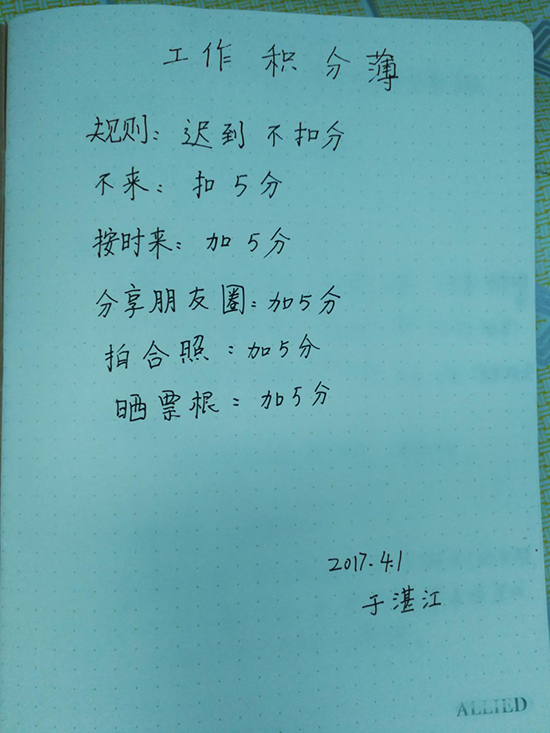 工作积分薄
规则：迟到 不扣分
不来：扣5分
按时来：加5分
分享朋友圈：加5分
拍合照：加5分
晒票根：加5分
2017.4.1
于湛江
ALLIED